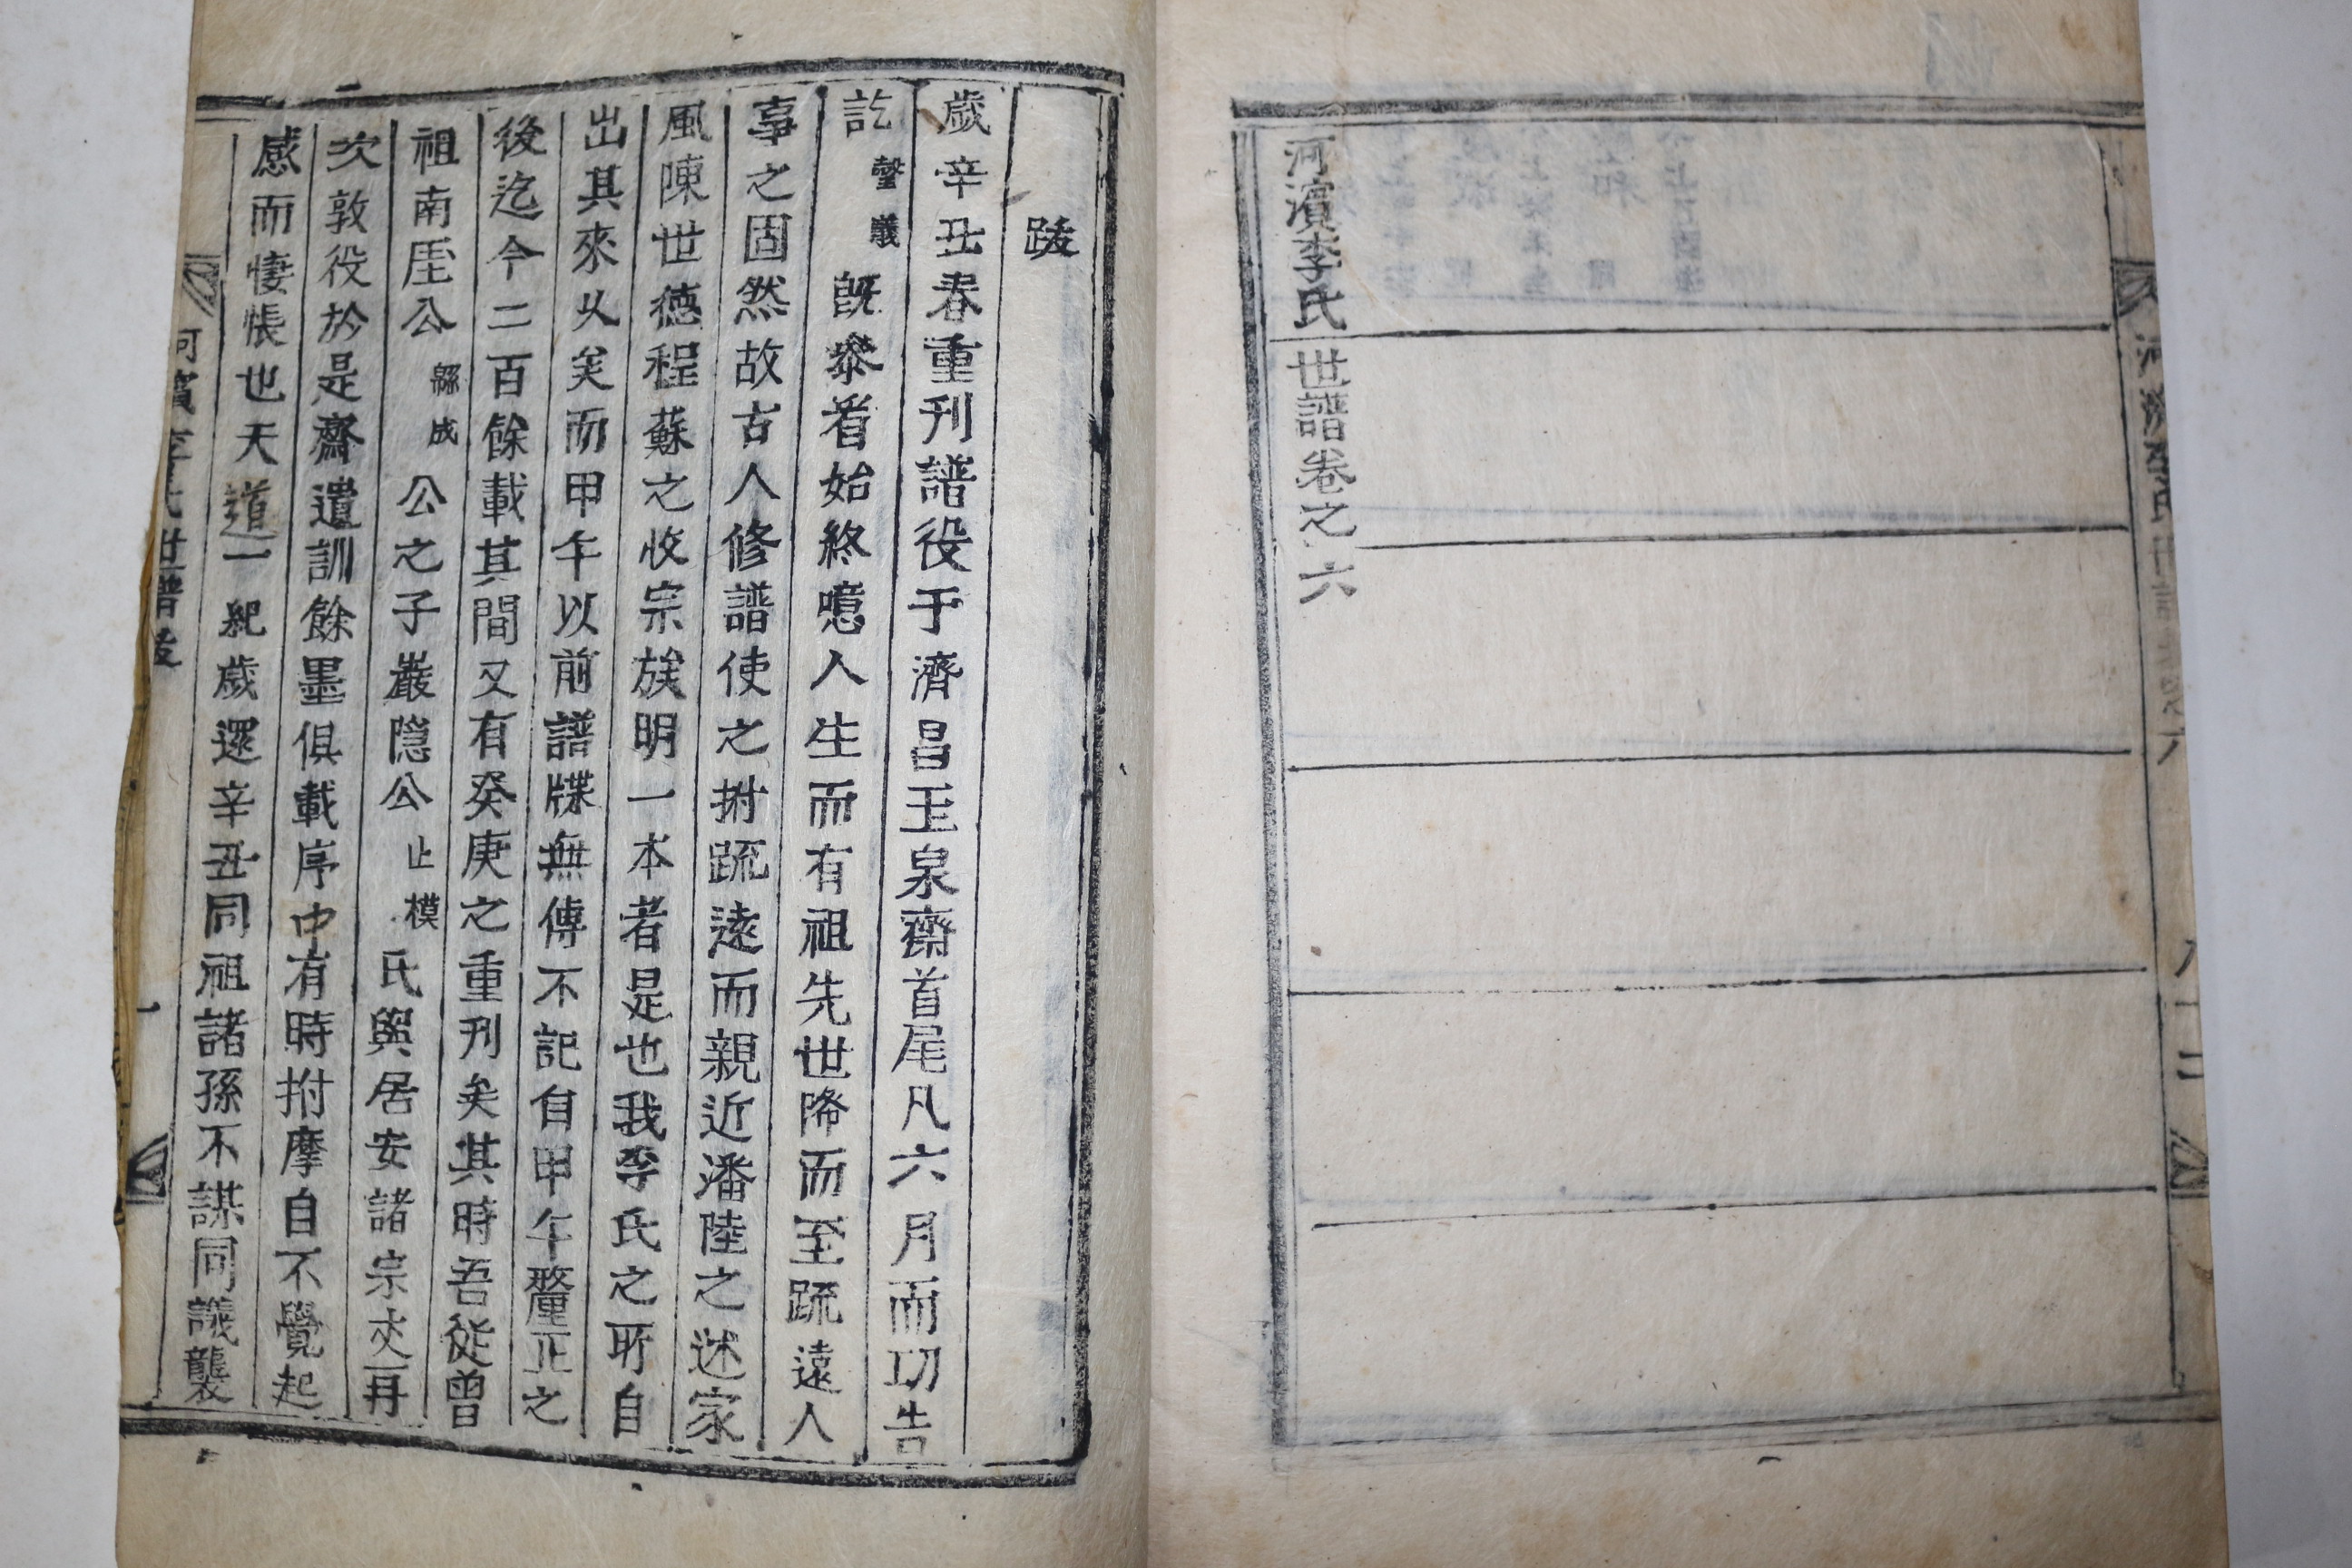 河濱李氏世譜卷之六
跋
歲辛丑春重刊譜役于濟昌玉泉齋首尾凡六月而功告
訖馨義旣叅看始終噫人生而有祖先世降而至䟽遠人
事之固然故古人修譜使之拊䟽遠而親近潘陸之述家
風陳世德程蘇之收宗族明一本者是也我李氏之所自
出其來久矣而甲午以前譜牒無傳不記自甲午釐正之
後迄今二百餘載其間又有癸庚之重刊矣其時吾從曾
祖南厓公縣成公之子巖隱公止模氏與居安諸宗丈再
次敦役於是齋遺訓餘墨俱載序中有時拊摩自不覺起
感而悽悵也天道一紀歲還辛丑同祖諸孫不謀同議襲